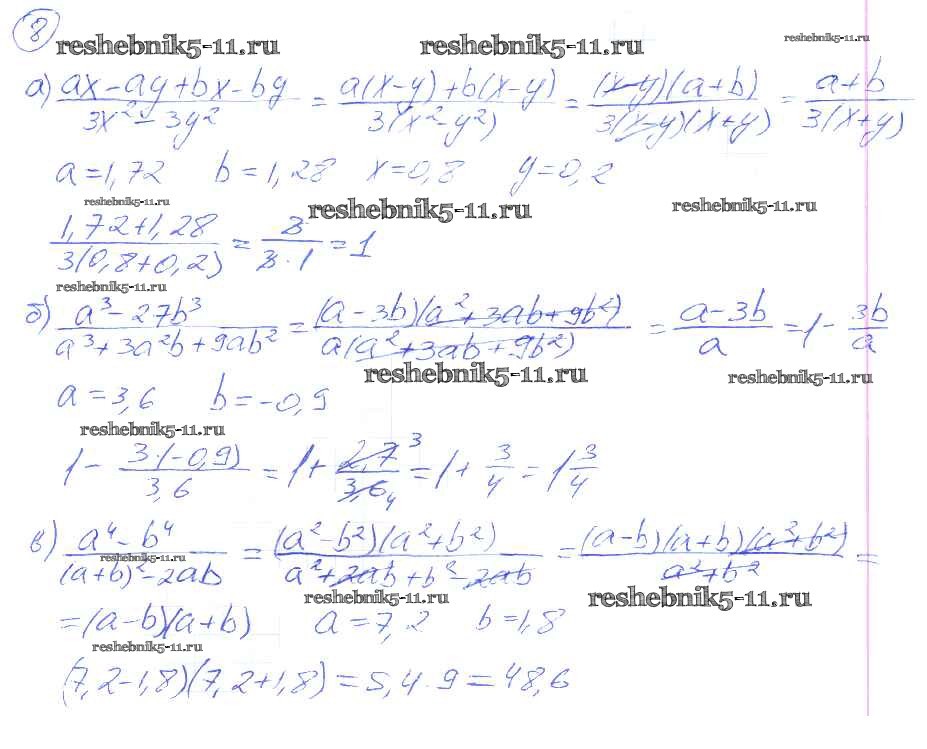 8
reshebnik5-11.ru reshebnik5-11.ru reshebnik5-11.ru
а) (ax-ay+bx-by)/(3x²-3y²) = (a(x-y)+b(x-y))/(3(x²-y²)) = ((x-y)(a+b))/(3(x-y)(x+y)) = (a+b)/(3(x+y))
a=1,72 b=1,28 x=0,8 y=0,2
reshebnik5-11.ru reshebnik5-11.ru reshebnik5-11.ru
(1,72+1,28)/(3(0,8+0,2)) = 3/(3·1) = 1
reshebnik5-11.ru
б) (a³-27b³)/(a³+3a²b+9ab²) = ((a-3b)(a²+3ab+9b²))/(a(a²+3ab+9b²)) = (a-3b)/a = 1 - 3b/a
reshebnik5-11.ru reshebnik5-11.ru
a=3,6 b=-0,9
reshebnik5-11.ru
1 - (3·(-0,9))/3,6 = 1 + 2,7 3/3,6 4 = 1 + 3/4 = 1 3/4
в) (a⁴-b⁴)/((a+b)²-2ab) = ((a²-b²)(a²+b²))/(a²+2ab+b²-2ab) = ((a-b)(a+b)(a²+b²))/(a²+b²) =
reshebnik5-11.ru reshebnik5-11.ru reshebnik5-11.ru
=(a-b)(a+b) a=7,2 b=1,8
reshebnik5-11.ru
(7,2-1,8)(7,2+1,8)=5,4·9=48,6